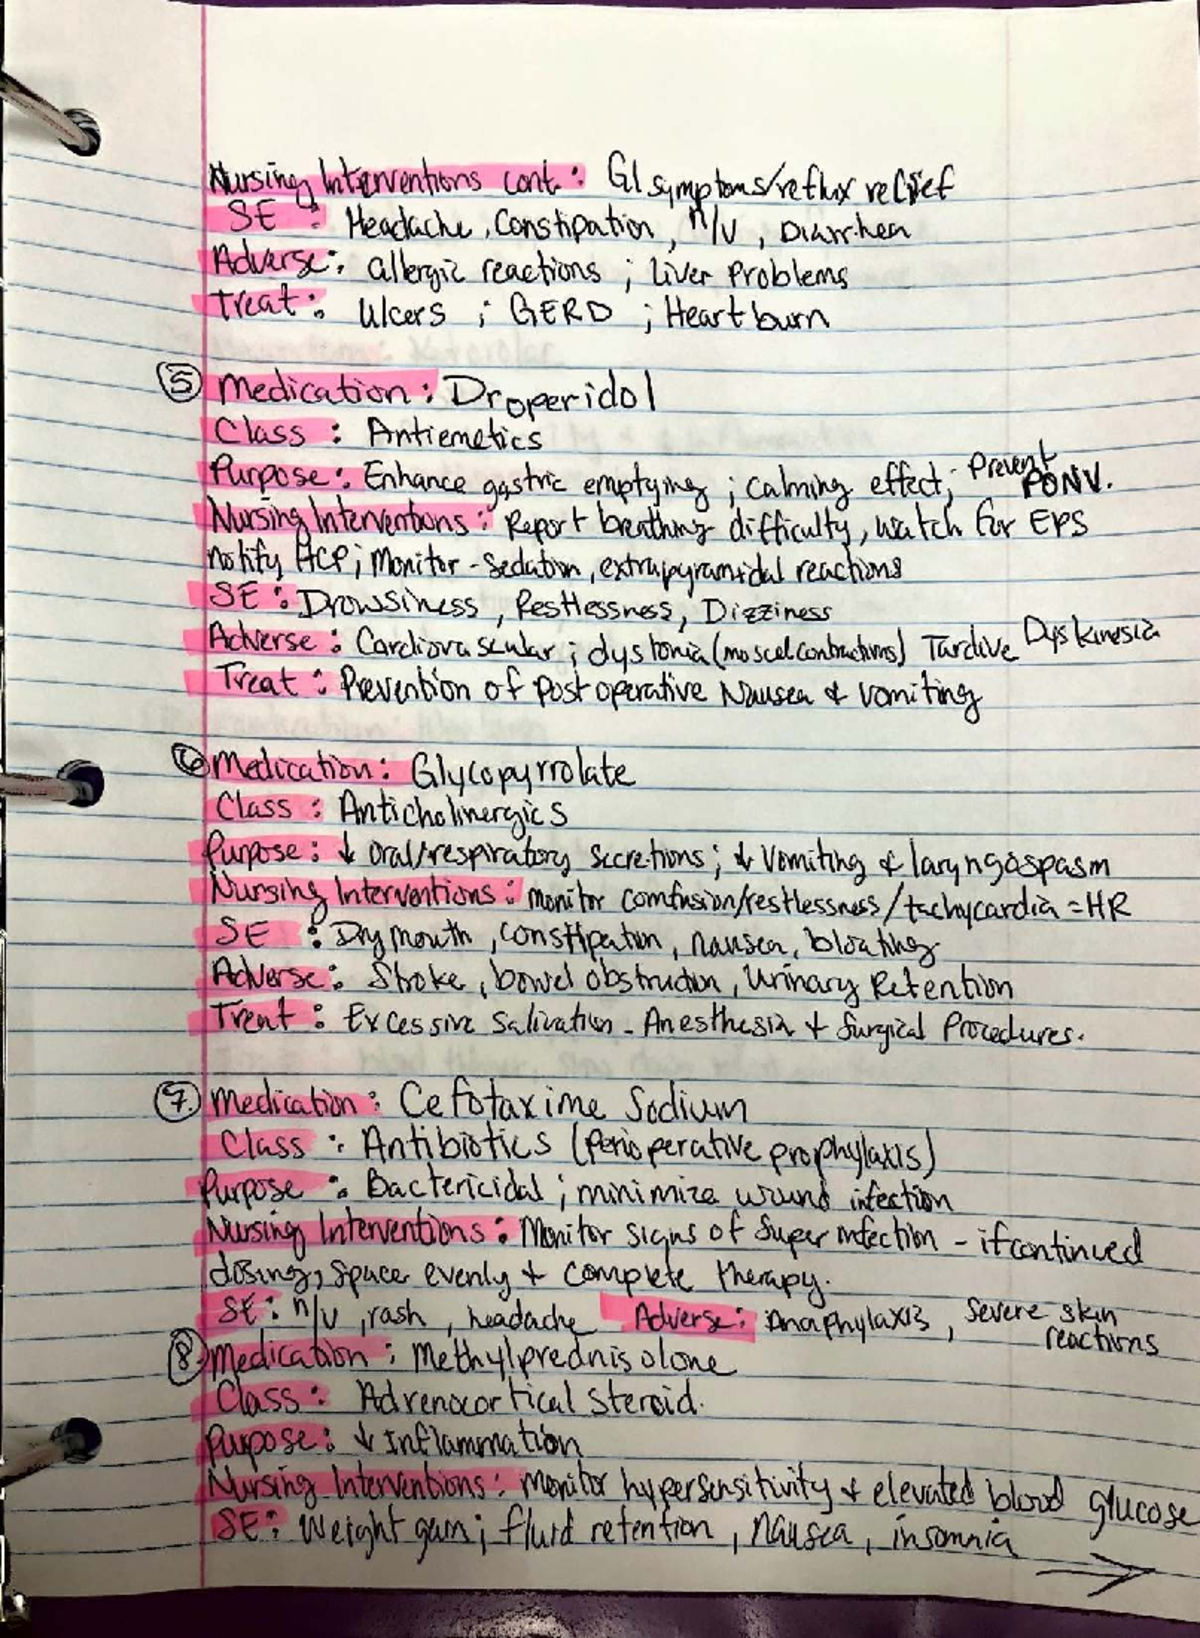 Nursing Interventions cont: GI symptoms/reflux relief
SE: Headache, Constipation, n/v, Diarrhea
Adverse: allergic reactions; Liver Problems
Treat: Ulcers; GERD; Heartburn
5 Medication: Droperidol
Class: Antiemetics
Purpose: Enhance gastric emptying; calming effect; Prevent PONV.
Nursing Interventions: Report breathing difficulty, watch for EPS
notify HCP; Monitor - Sedation, extrapyramidal reactions
SE: Drowsiness, Restlessness, Dizziness
Adverse: Cardiovascular; dystonia (moscel contractions) Tardive Dyskinesia
Treat: Prevention of Post operative Nausea & vomiting
6 Medication: Glycopyrrolate
Class: Anticholinergics
Purpose: ↓ oral/respiratory secretions; ↓ vomiting & laryngospasm
Nursing Interventions: monitor comfusion/restlessness/tachycardia = HR
SE: Dry mouth, constipation, nausea, bloating
Adverse: Stroke, bowel obstruction, Urinary Retention
Treat: Excessive Salivation - Anesthesia + Surgical Procedures.
7. Medication: Cefotaxime Sodium
Class: Antibiotics (Perioperative prophylaxis)
Purpose: Bactericidal; minimize wound infection
Nursing Interventions: Monitor signs of Superinfection - if continued
dosing, space evenly + complete therapy.
SE: n/v, rash, headache Adverse: Anaphylaxis, Severe skin reactions
8 Medication: Methylprednisolone
Class: Adrenocortical steroid.
Purpose: ↓ Inflammation
Nursing Interventions: monitor hypersensitivity & elevated blood glucose
SE: Weight gain; fluid retention, nausea, insomnia
→